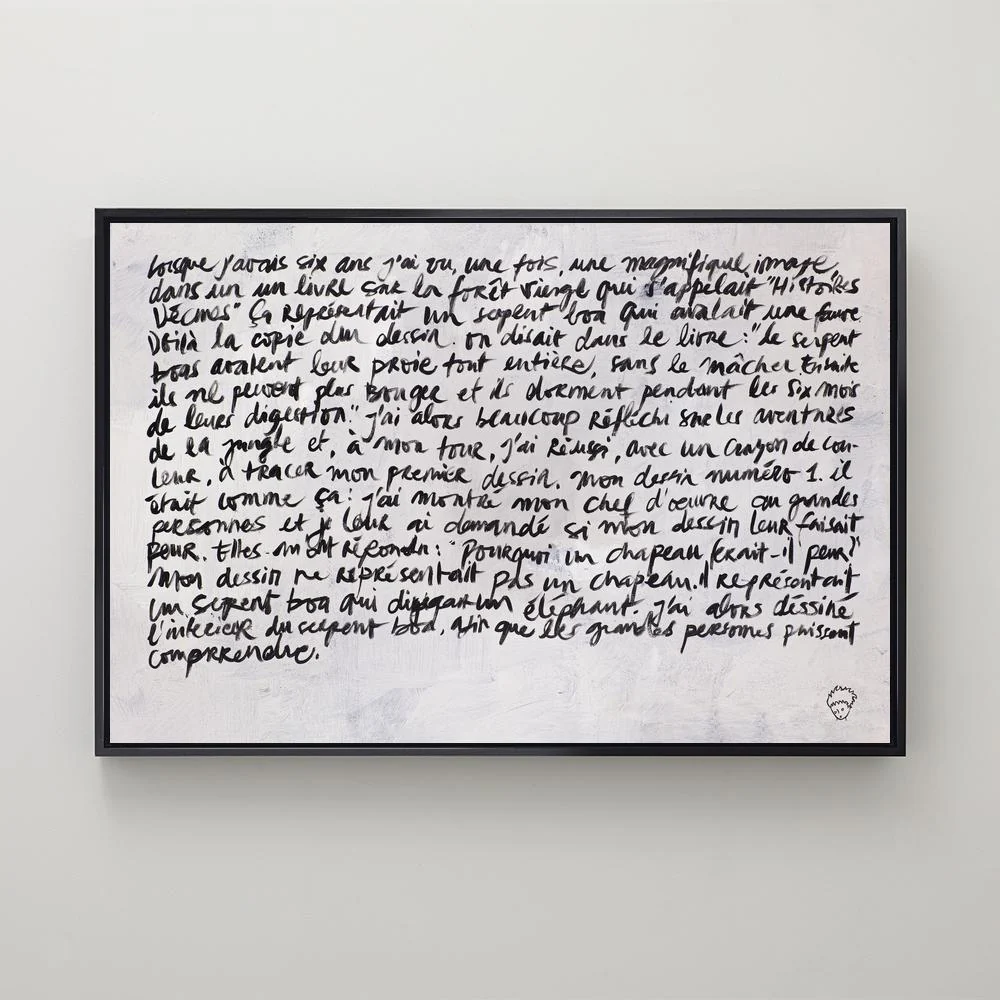 Lorsque j'avais six ans j'ai vu, une fois, une magnifique image,
dans un un livre sur la forêt vierge qui s'appelait "Histoires
Vécues" Ça représentait un serpent boa qui avalait une fauve
Voilà la copie du dessin. on disait dans le livre : "Le serpent
boas avalent leur proie tout entière, sans le mâcher. Ensuite
ils ne peuvent plus bouger et ils dorment pendant les six mois
de leurs digestion." j'ai alors beaucoup réfléchi sur les aventures
de la jungle et, à mon tour, j'ai réussi, avec un crayon de cou-
leur, à tracer mon premier dessin. Mon dessin numéro 1. il
était comme ça : j'ai montré mon chef d'oeuvre au grandes
personnes et je leur ai demandé si mon dessin leur faisait
peur. Elles m'ont répondu : "Pourquoi un chapeau ferait-il peur?"
Mon dessin ne représentait pas un chapeau. Il représentait
un serpent boa qui digérait un éléphant. j'ai alors déssiné
l'intérieur du serpent boa, afin que les grandes personnes puissent
comprrendre.